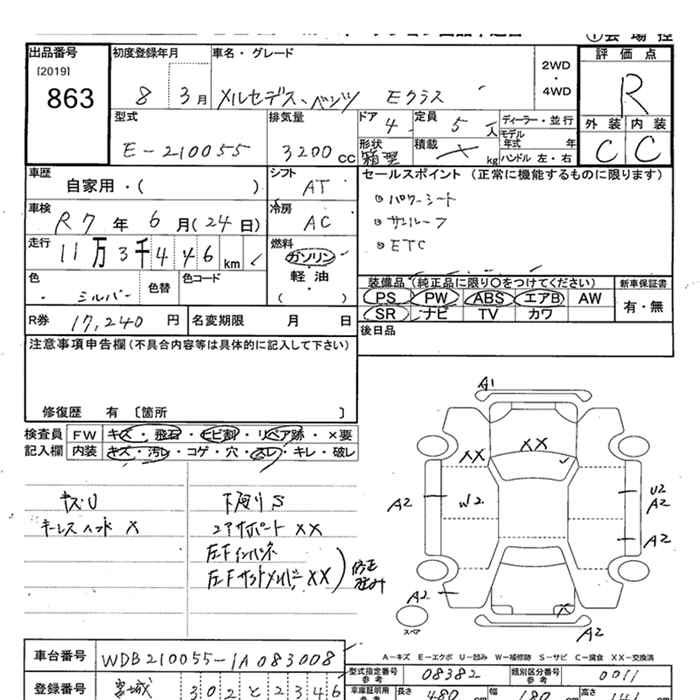 出品番号
[2019]
863
初度登録年月
8 3月
車名・グレード
メルセデス・ベンツ Eクラス
2WD
・
4WD
評価点
R
外装 内装
C C
型式
E-210055
排気量
3200CC
ドア 4
定員 5人
ディーラー・並行
モデル
年式 年
形状
箱型
積載 kg
ハンドル 左・右
車歴
自家用・( )
シフト
AT
セールスポイント (正常に機能するものに限ります)
パワーシート
サンルーフ
ETC
車検
R7年6月(24日)
冷房
AC
走行
11万3千446km
燃料
ガソリン
軽油
( )
色
シルバー
色替
色コード
装備品 (純正品に限り○をつけてください)
新車保証書
PS PW ABS エアB AW
有・無
SR ナビ TV カワ
R券 17,240円
名変期限 月 日
後日品
注意事項申告欄 (不具合内容等は具体的に記入して下さい)
修復歴 有 〔箇所 〕
検査員 FW キズ・飛石・ヒビ割・リペア跡・×要
記入欄 内装 キズ・汚レ・コゲ・穴・スレ・キレ・破レ
キズU
下廻りS
キーレスヘッド X
コアサポート XX
左Fインパネ
左Fサイドメンバー XX
修正
歪み
A1
XX
XX
W2
A2
U2
A2
A2
A2
X
A2
スペア
A-キズ E-エクボ U-凹み W-補修跡 S-サビ C-腐食 XX-交換済
車台番号 WDB210055-1A083008
型式指定番号 08382
類別区分番号 0011
登録番号 宮城 302 と 2346
車庫証明用
参考
長さ 480cm
幅 180
高さ 141